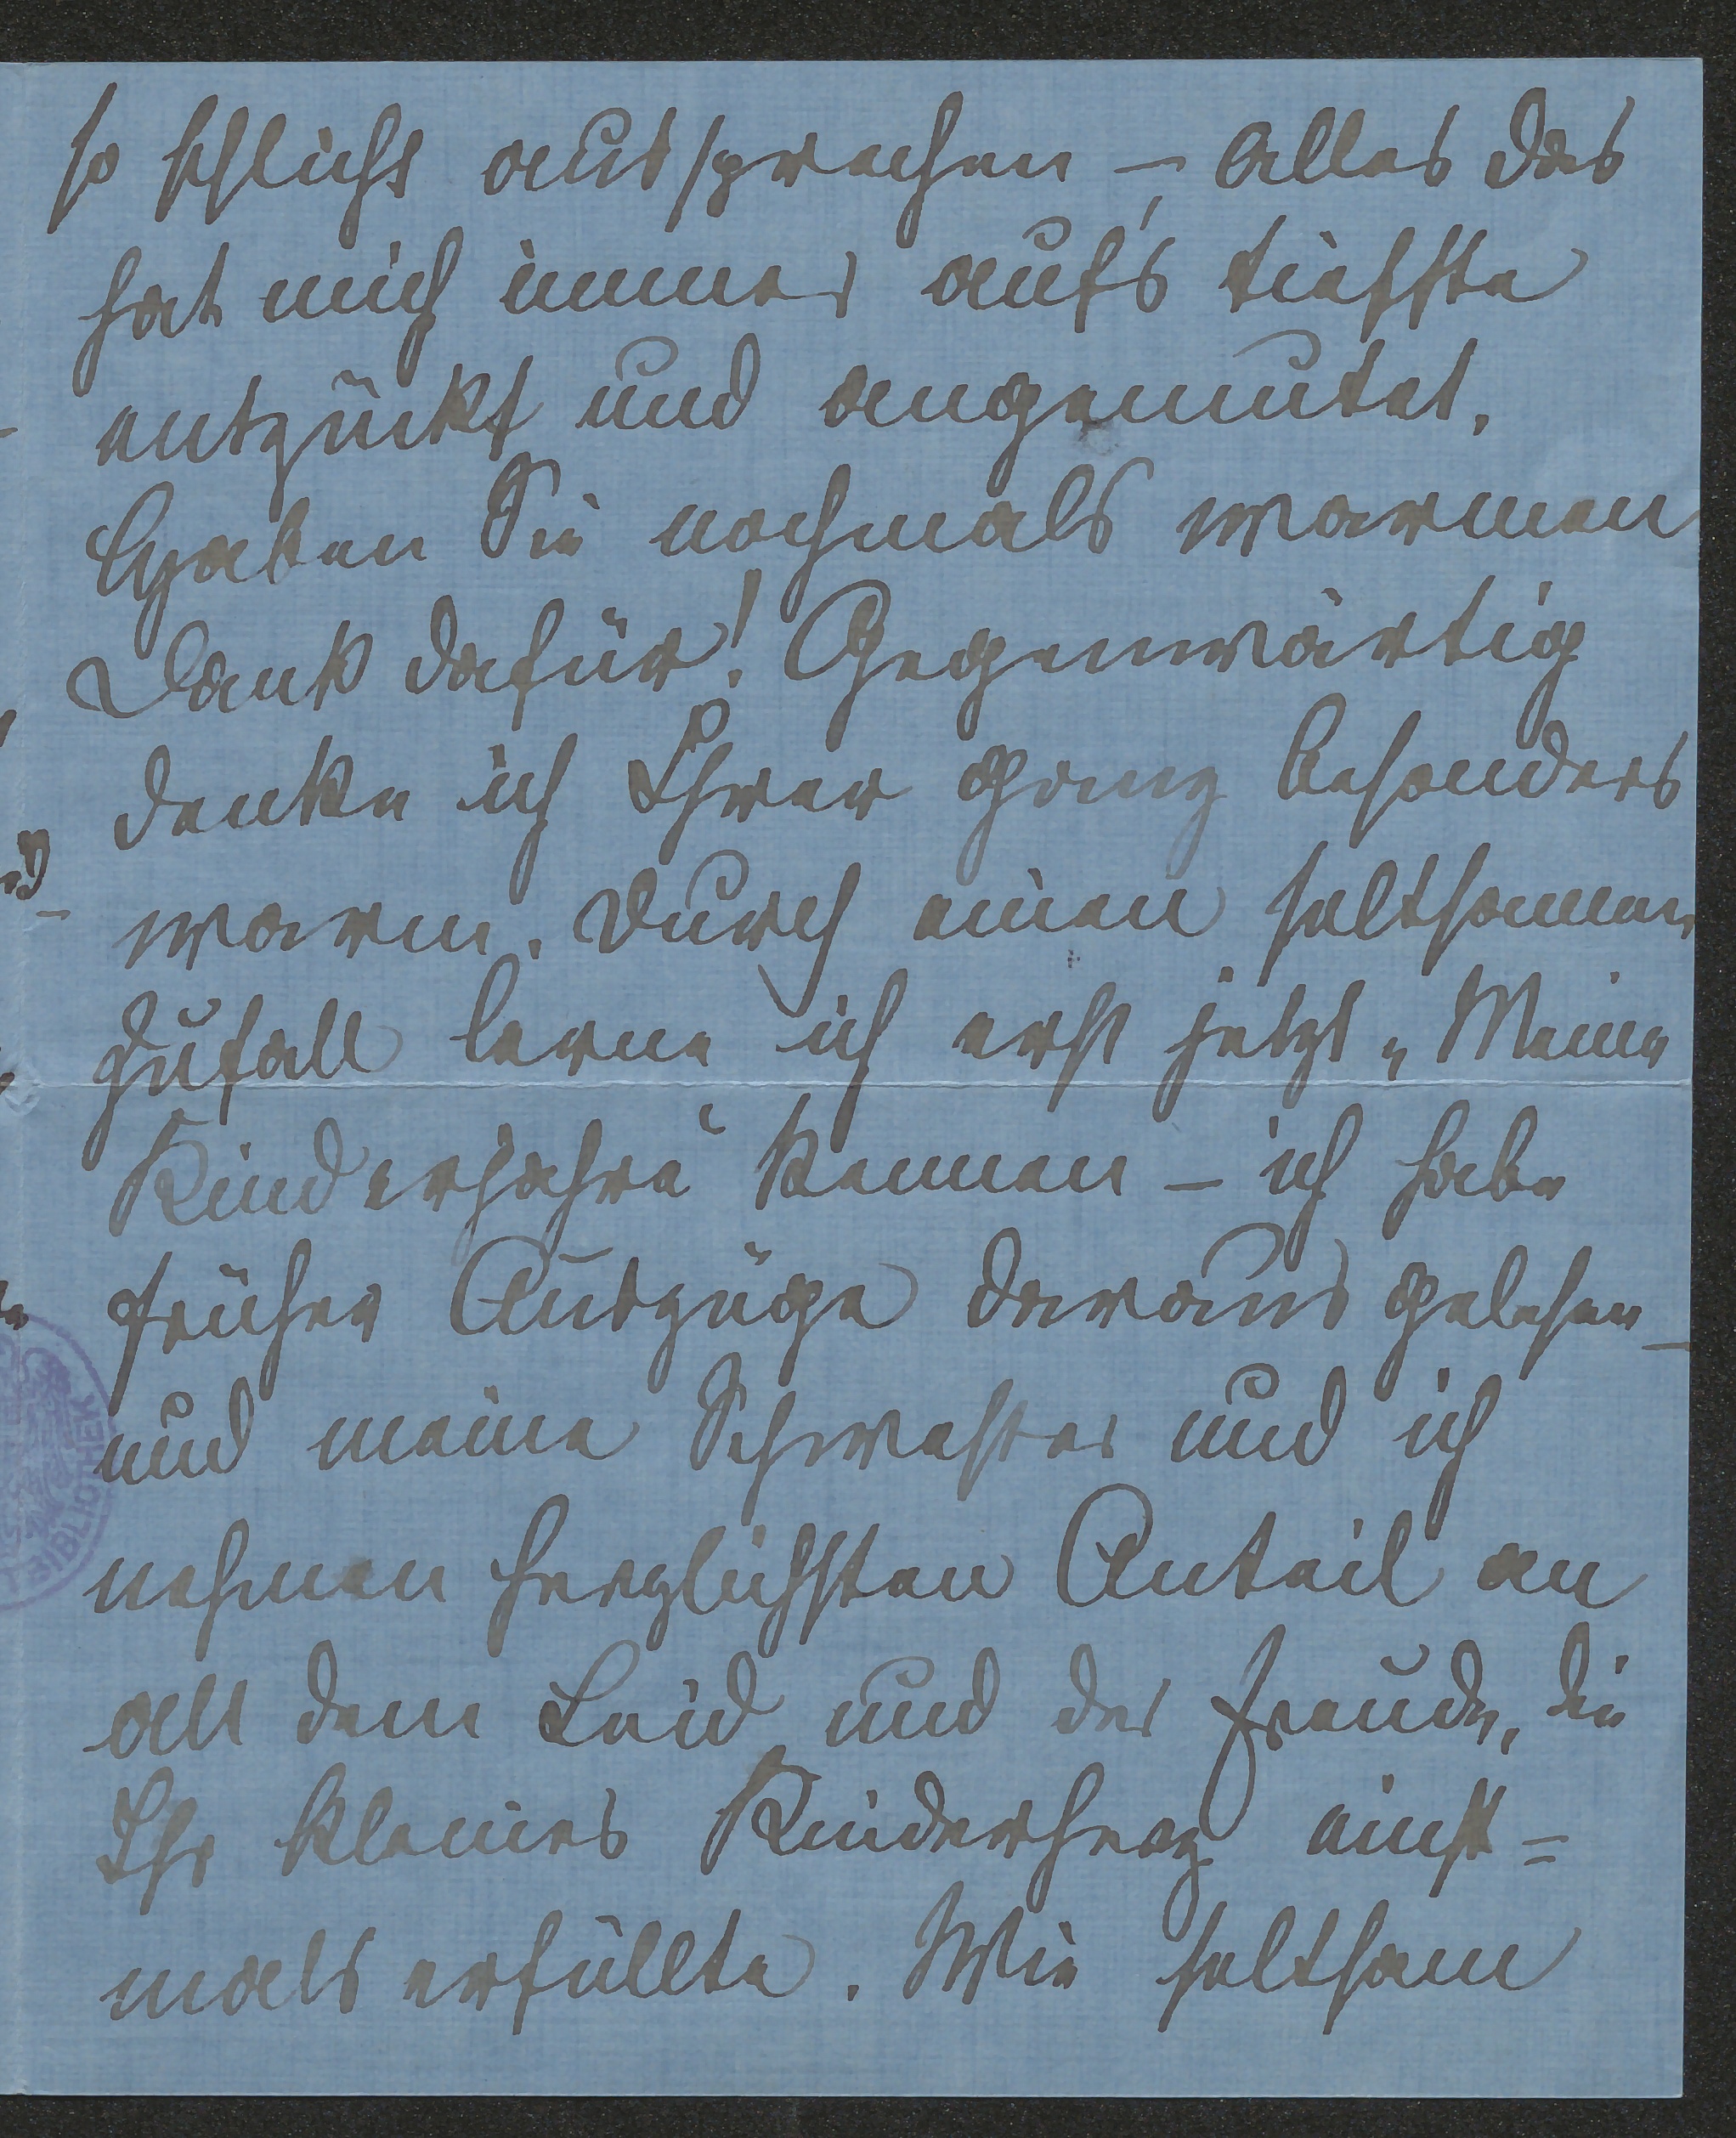 so schlicht aussprechen – alles das
hat mich immer auf's tiefste
entzückt und angemutet.
Haben Sie nochmals warmen
Dank dafür! Gegenwärtig
denke ich Ihrer ganz besonders
warm. Durch einen seltsamen
Zufall lerne ich erst jetzt „Meine
Kinderjahre" kennen – ich habe
früher Auszüge daraus gelesen –
und meine Schwester und ich
nehmen herzlichsten Anteil an
all dem Leid und der Freude, die
Ihr kleines Kinderherz einst=
mals erfüllte. Wie seltsam